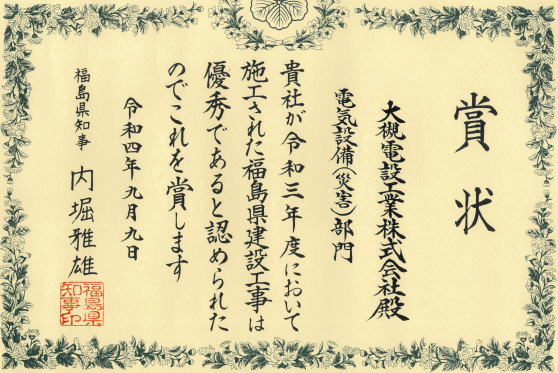 賞状
大槻電設工業株式会社殿
電気設備(災害)部門
貴社が令和三年度において
施工された福島県建設工事は
優秀であると認められた
のでこれを賞します
令和四年九月九日
福島県知事 内堀雅雄
福島県
知事印